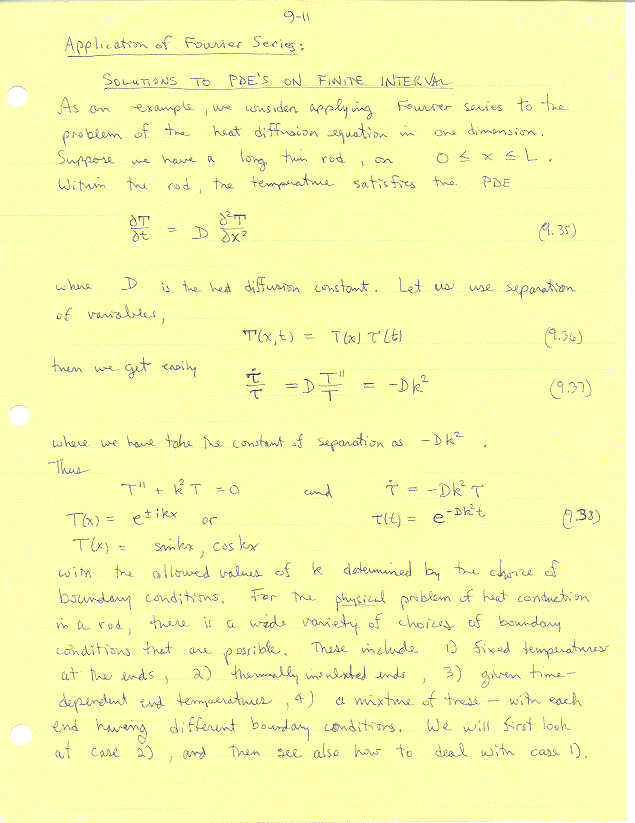 9-11
Application of Fourier Series:
SOLUTIONS TO PDE'S ON FINITE INTERVAL
As an example, we consider applying Fourier series to the
problem of the heat diffusion equation in one dimension.
Suppose we have a long thin rod, on 0 ≤ x ≤ L.
Within the rod, the temperature satisfies the PDE
∂T/∂t = D ∂²T/∂x² (9.35)
where D is the heat diffusion constant. Let us use separation
of variables,
T(x,t) = T(x) τ(t) (9.36)
then we get easily τ̇/τ = D T''/T = -Dk² (9.37)
where we have take the constant of separation as -Dk².
Thus
T'' + k²T = 0 and τ̇ = -Dk² τ
T(x) = e^{±ikx} or τ(t) = e^{-Dk²t} (9.38)
T(x) = sinkx, coskx
with the allowed values of k determined by the choice of
boundary conditions. For the physical problem of heat conduction
in a rod, there is a wide variety of choices of boundary
conditions that are possible. These include 1) fixed temperatures
at the ends, 2) thermally insulated ends, 3) given time-
dependent end temperatures, 4) a mixture of these – with each
end having different boundary conditions. We will first look
at case 2), and then see also how to deal with case 1).